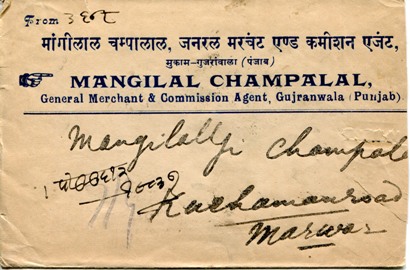 From
मांगीलाल चम्पालाल, जनरल मरचंट एण्ड कमीशन एजंट,
मुकाम-गुजरांवाला (पंजाब)
MANGILAL CHAMPALAL,
General Merchant & Commission Agent, Gujranwala (Punjab).
Mangilalji Champala
Kuchaman road
Marwar